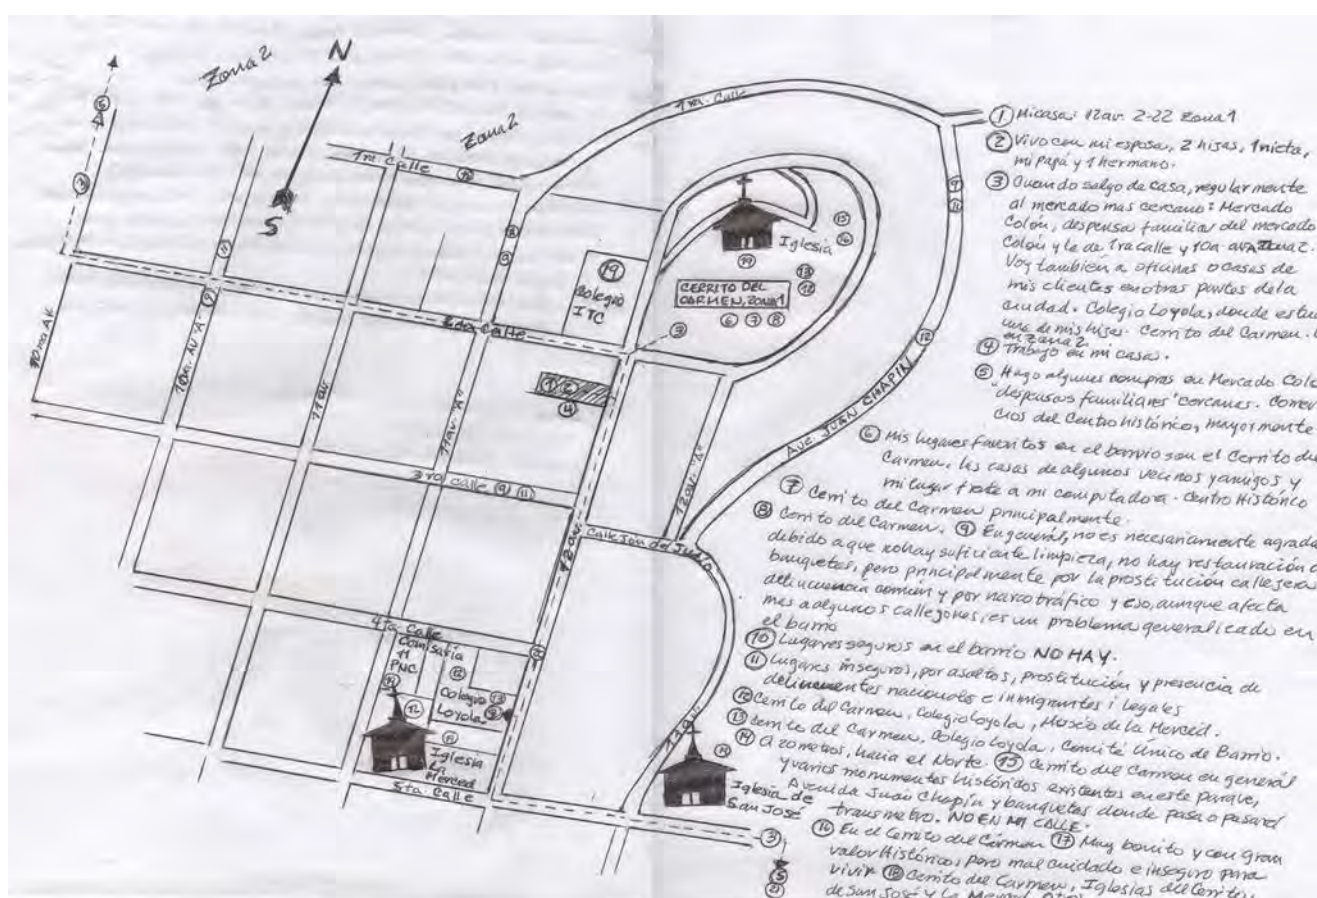 Zona 2
N
Zona 2
S
1ra. Calle
1ra. Calle
10
6
3
11
9
8
9
9
11
12
19
Colegio
ITC
Iglesia
19
15
16
13
12
CERRITO DEL
CARMEN, ZONA 1
6 7 8
3
2da. Calle
1 2
4
10ma. AV.
10ma. AV "A"
11 av.
11 av. "A"
12 av.
12 av. "A"
Ave. JUAN CHAPIN
3ra calle 9 11
Callejon de Judio
4ta. Calle
Comisaria
11
PNC
Colegio 13
Loyola
12
Iglesia
La
Merced
5ta. Calle
11 av.
Iglesia de
San José
3
5
21
1 Mi casa: 12av. 2-22 Zona 1
2 Vivo con mi esposa, 2 hijas, 1 nieta,
mi papá y 1 hermano.
3 Cuando salgo de casa, regularmente
al mercado mas cercano: Mercado
Colón, despensa familiar del mercado
Colón y la de 1ra calle y 10a. av A Zona 2.
Voy también a oficinas o casas de
mis clientes en otras partes de la
ciudad. Colegio Loyola, donde estu
una de mis hijas. Cerrito del Carmen.
en zona 2
4 Trabajo en mi casa.
5 Hago algunas compras en Mercado Colo
"despensas familiares" cercanas. Comer
cios del Centro histórico, mayormente
6 Mis lugares favoritos en el barrio son el Cerrito del
Carmen, las casas de algunos vecinos y amigos y
mi lugar frete a mi computadora. Centro Histórico
7 Cerrito del Carmen principalmente.
8 Cerrito del Carmen. 9 En general, no es necesariamente agrada
debido a que no hay suficiente limpieza, no hay restauración d
banquetas, pero principalmente por la prostitución callejera
delincuencia común y por narcotráfico y eso, aunque afecta
mas a algunos callejones, es un problema generalizado en
el barrio
10 Lugares seguros en el barrio NO HAY.
11 Lugares inseguros, por asaltos, prostitución y presencia de
delincuentes nacionales e inmigrantes ilegales
12 Cerrito del Carmen, Colegio Loyola, Museo de la Merced.
13 Cerrito del Carmen, Colegio Loyola, Comité Unico de Barrio.
14 A 20 metros, hacia el Norte. 15 Cerrito del Carmen en general
y varios monumentos históricos existentes en este parque,
Avenida Juan Chapin y banquetas donde pasa o pasará
transmetro. NO EN MI CALLE.
16 En el Cerrito del Cármen 17 Muy bonito y con gran
valor Histórico, pero mal cuidado e inseguro para
vivir 18 Cerrito del Carmen, Iglesias del Cerrito,
de San José y La Merced,